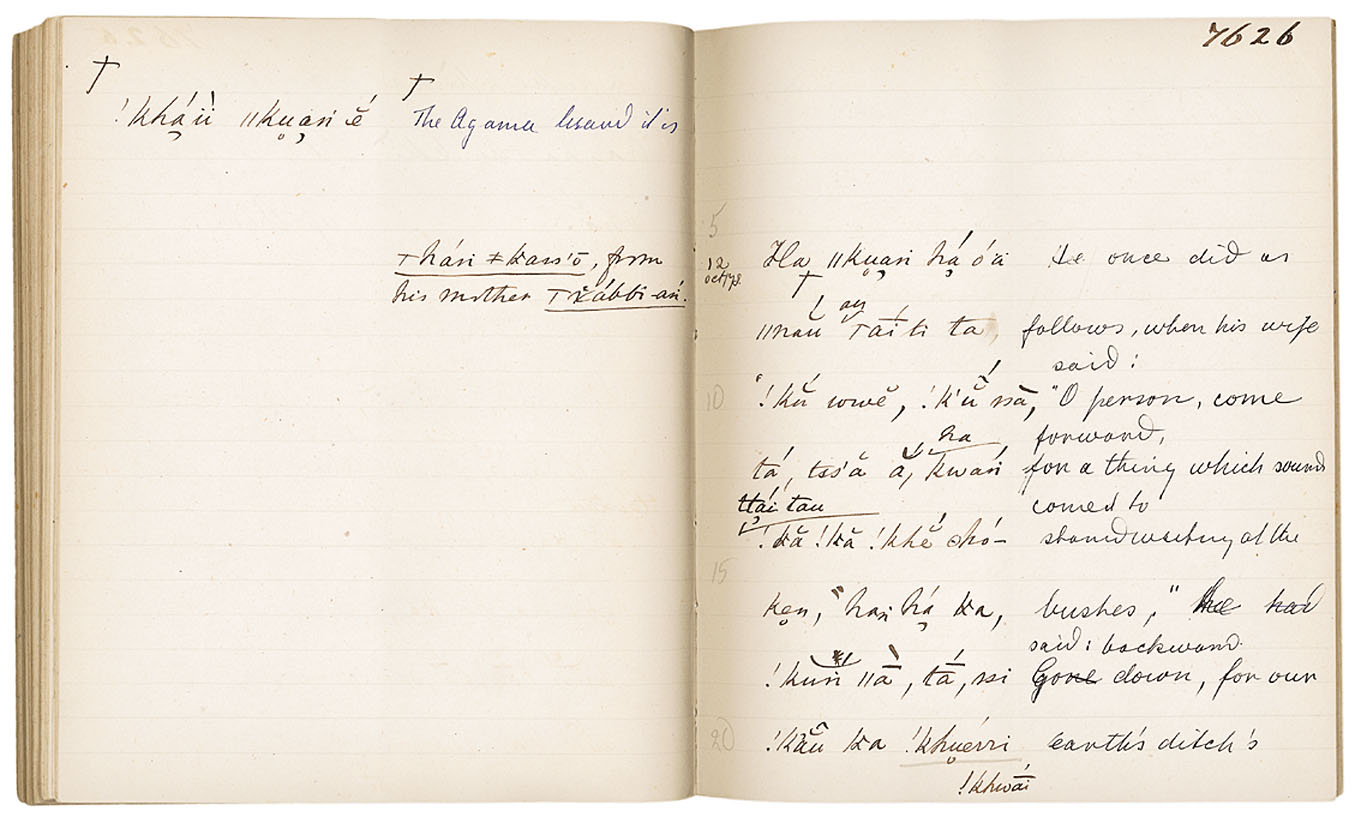 7626
† †
!kháù̖ ǁku̥a̖ń é The Agama lizard it is
ǀháń ǂkass'ō, from
his mother ǀx̌ábbi-aṅ.
5
12 oct/78. Ha ǁku̥a̖ṅ há̖ óä He once did as
†
ǁnau ǀaíti ta, follows, when his wife
said:
10 "!kŭ́ wwĕ, !k'ŭ́ ssā, "O person, come
ha forward,
tá, tss'ă ă̖, kwań for a thing which sound
ttái̖ tau comed to
!kă !kă !khĕ́ ǒhó- stand waiting at the
15
ke̥n," haṅ há̖ ka, bushes," he had
said: backward.
!kuṅ ǁā̀, tā́, ssi Gone down, for our
20 !kāŭ̃ ka !khu̥érri earth's ditch's
!khwāí